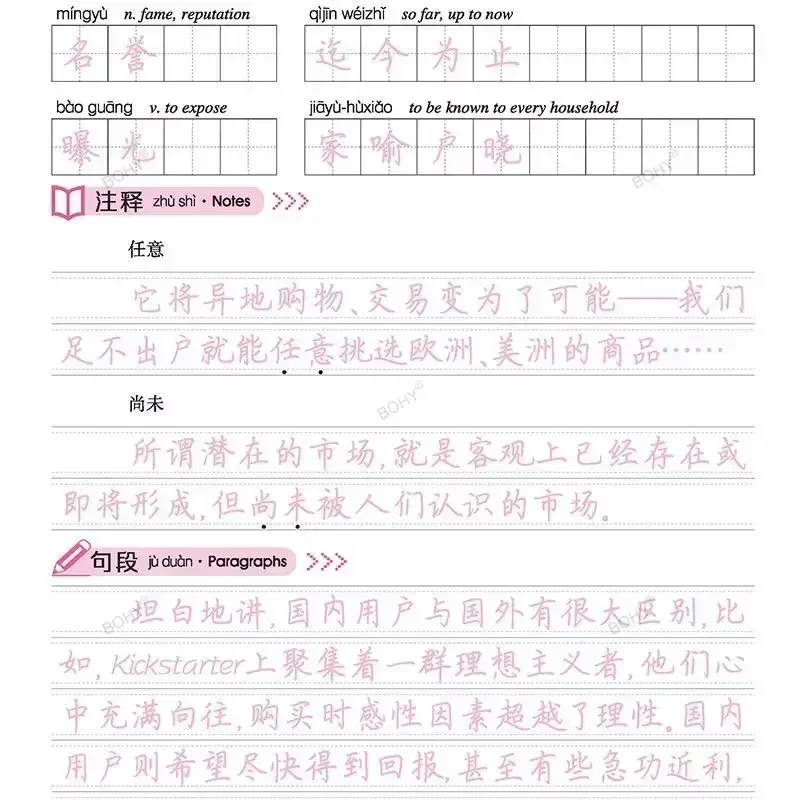 míngyù n. fame, reputation
qìjīn wéizhǐ so far, up to now
名誉
迄今为止
bào guāng v. to expose
jiāyù-hùxiǎo to be known to every household
曝光
家喻户晓
BOHY®
BOHY®
注释 zhù shì · Notes
任意
它将异地购物、交易变为了可能——我们
足不出户就能任意挑选欧洲、美洲的商品……
BOHY®
尚未
所谓潜在的市场,就是客观上已经存在或
即将形成,但尚未被人们认识的市场。
句段 jù duàn · Paragraphs
坦白地讲,国内用户与国外有很大区别,比
BOHY®
BOHY®
如,Kickstarter上聚集着一群理想主义者,他们心
中充满向往,购买时感性因素超越了理性。国内
用户则希望尽快得到回报,甚至有些急功近利,